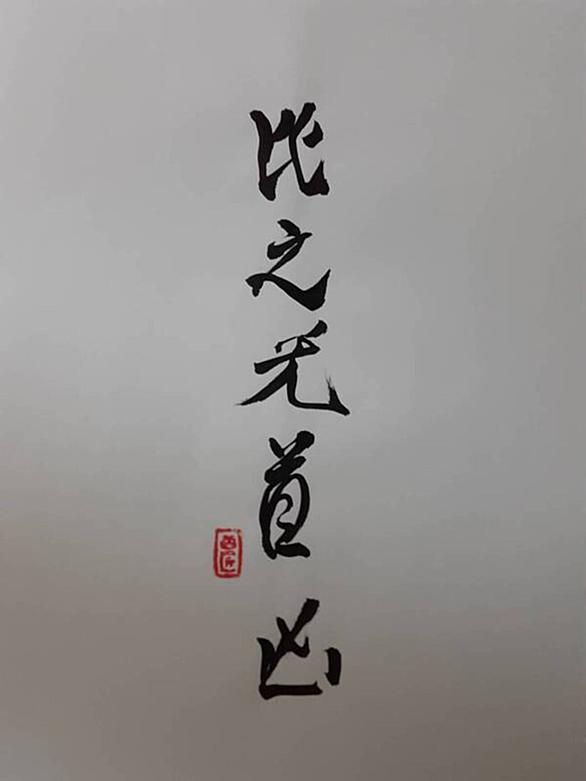 比之无首凶